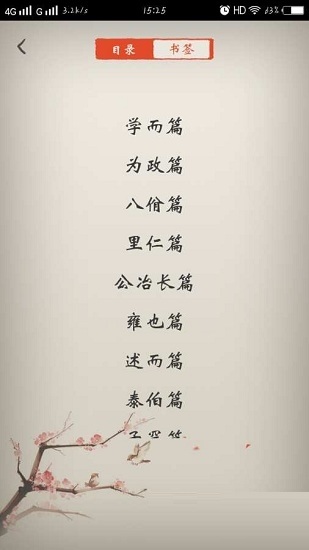 4G G 3.2k/s 15:25 HD 63%
目录 书签
学而篇
为政篇
八佾篇
里仁篇
公冶长篇
雍也篇
述而篇
泰伯篇